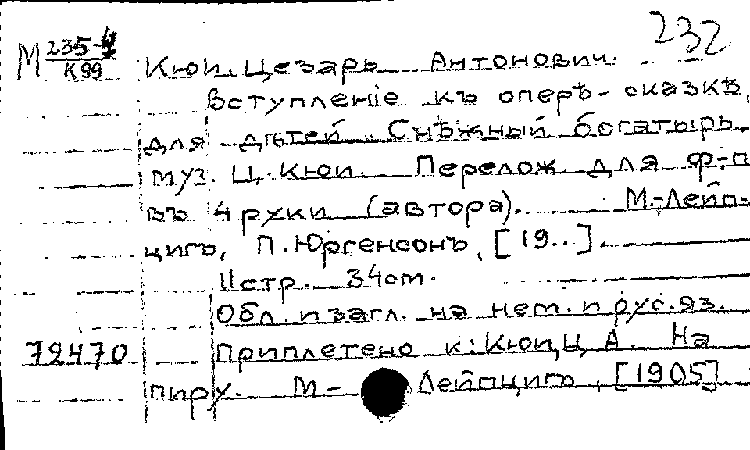 232
М 235-4
К99
Кюи, Цезарь Антонович.
Вступленіе къ оперѣ-сказкѣ,
для дѣтей Снѣжный богатырь
муз. Ц. Кюи. Перелож. для ф-п
въ 4 руки (автора). М.-Лейп-
цигъ, П. Юргенсонъ, [19..].
11 стр. 34 cm.
Обл. и загл. на нем. и рус. яз.
72470 Приплетено к: Кюи, Ц. А. На
пиру. М.- Лейпцигъ, [1905]